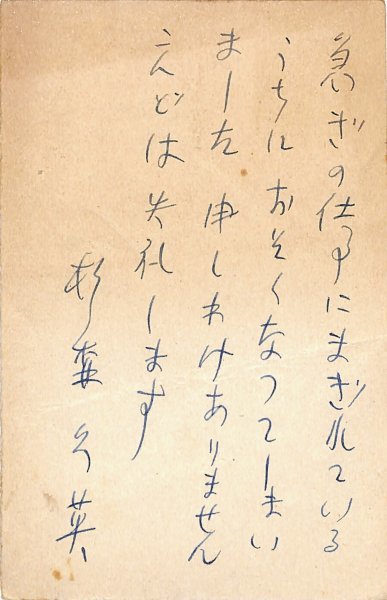 急ぎの仕事にまぎれている
うちにおそくなつてしまい
ました 申しわけありません
こんどは失礼します
杉森久英